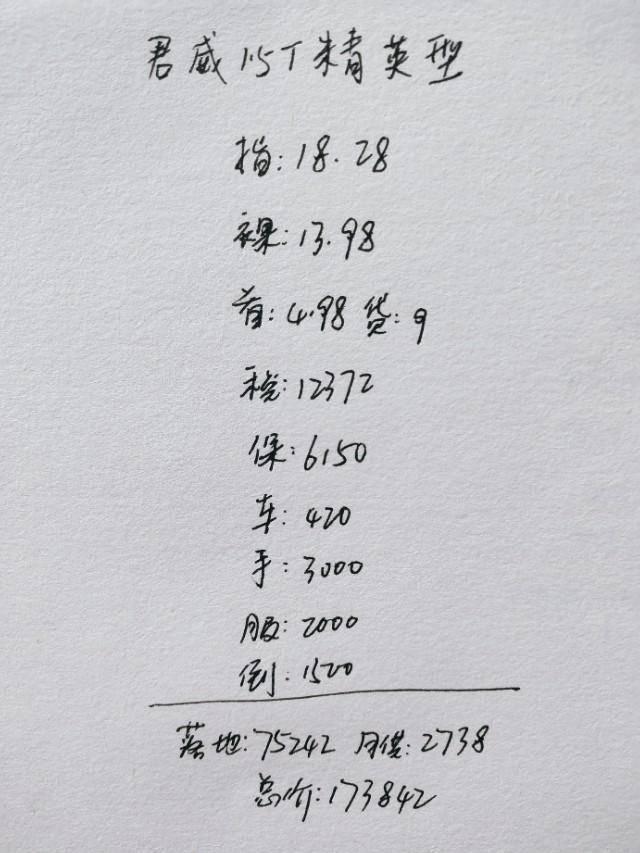 君威 1.5T 精英型
指: 18.28
裸: 13.98
首: 4.98 贷: 9
税: 12372
保: 6150
车: 420
手: 3000
服: 2000
倒: 1500
落地: 75242 月供: 2738
总价: 173842